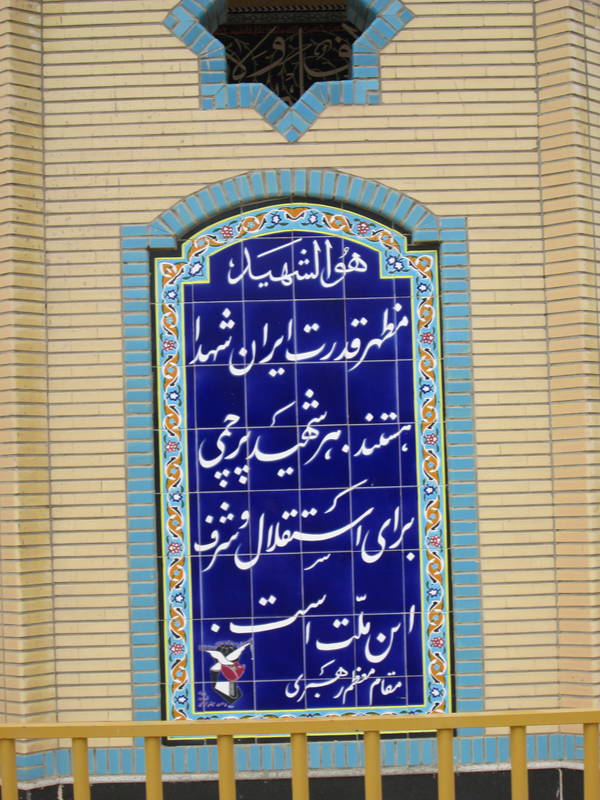 هُوَ الشهید
مظهر قدرت ایران شهدا
هستند. هر شهید پرچمی
برای استقلال و شرف
این ملّت است.
مقام معظم رهبری